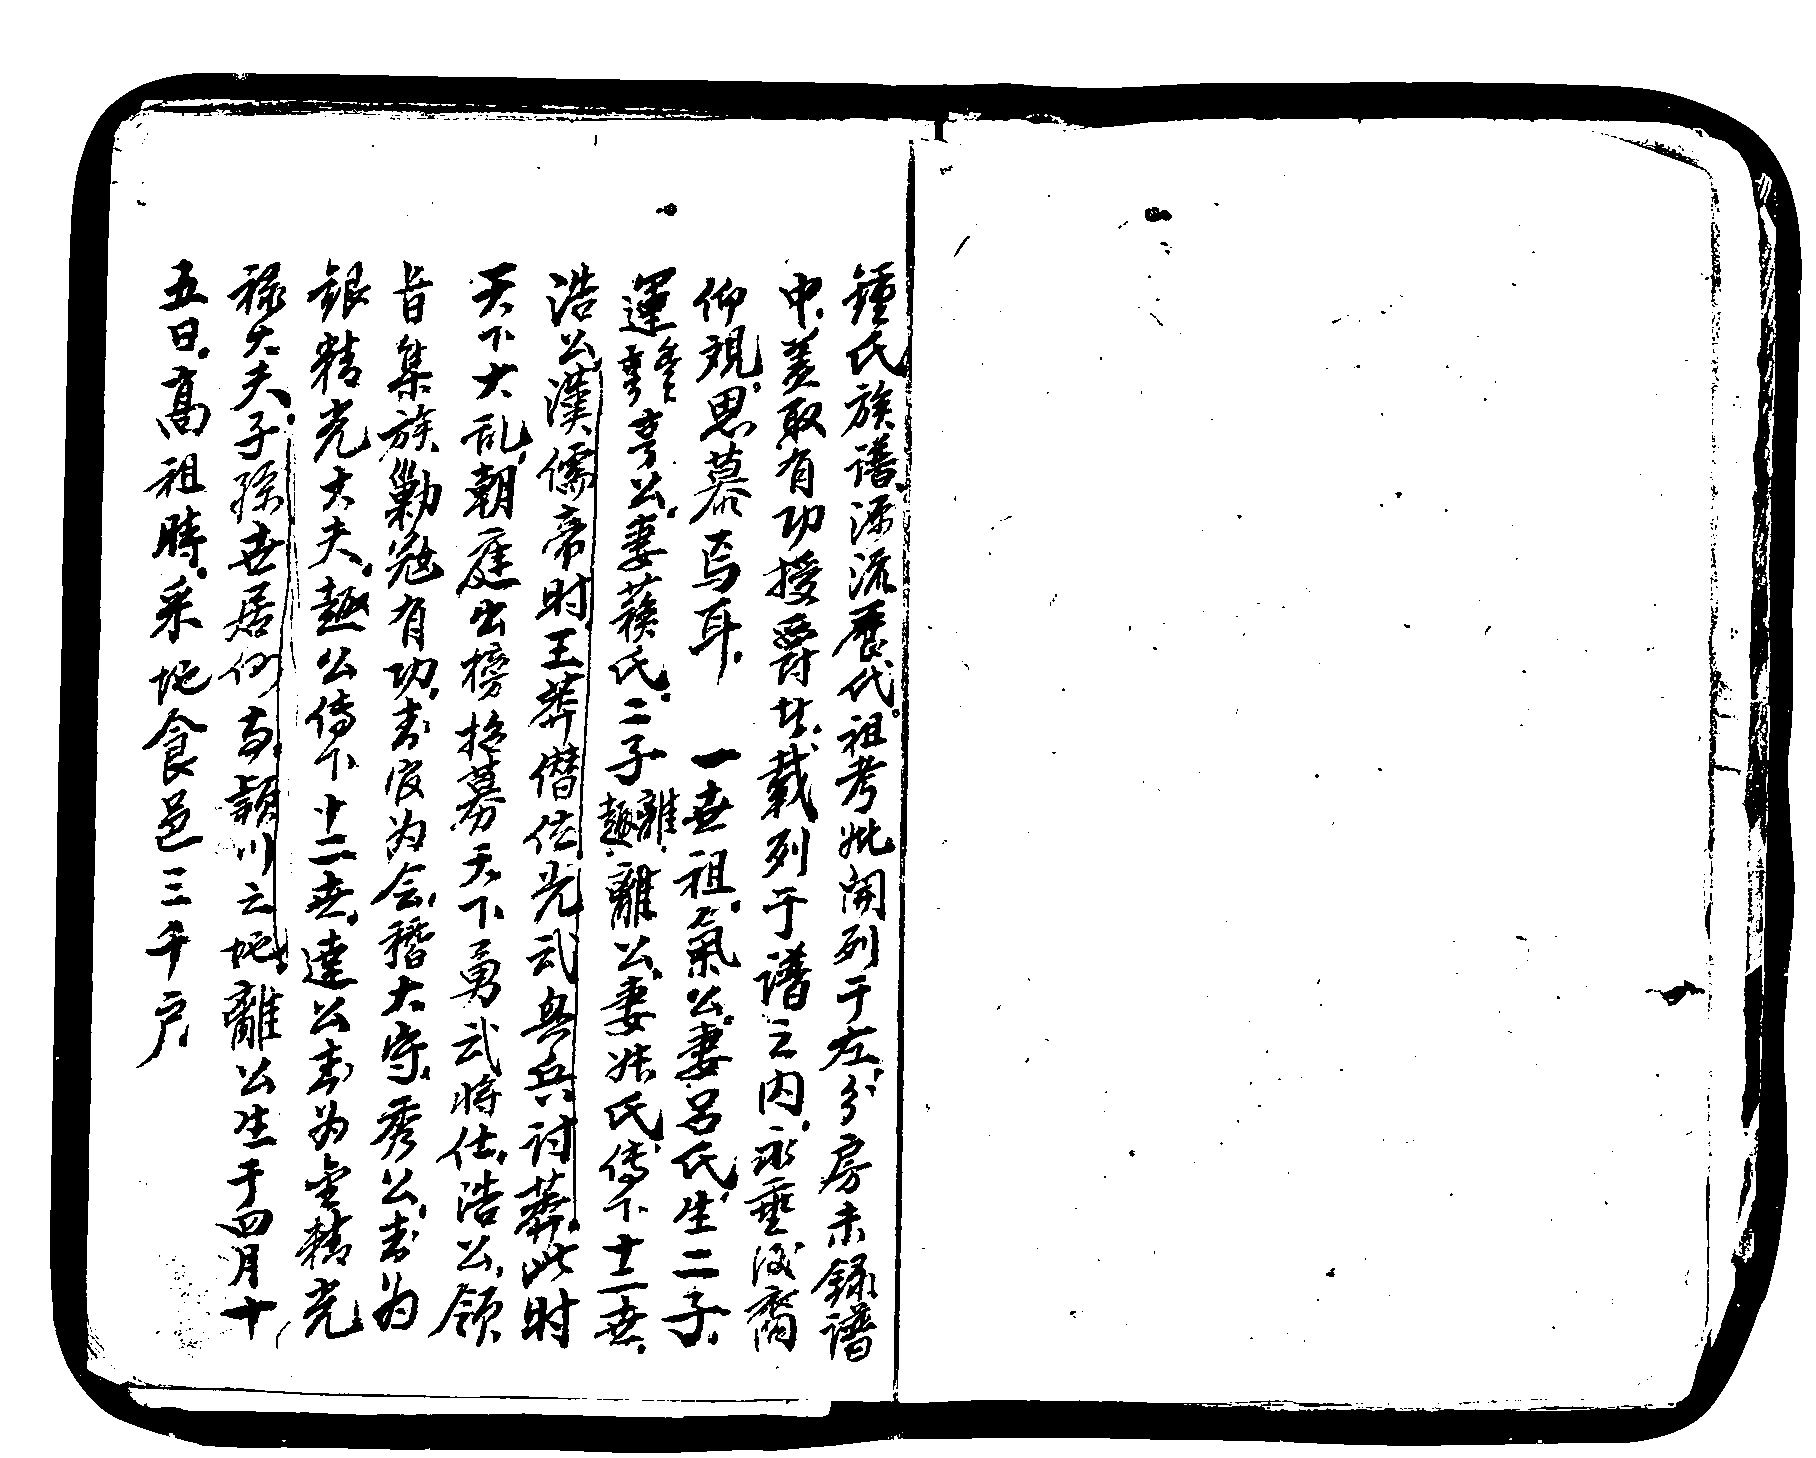 鍾氏族譜源流歷代祖考妣開列于左分房未録譜
中姜取有功授爵者載列于譜之内永垂後裔
仰視思慕焉耳 一世祖氣公妻呂氏生二子
運 亨公妻蘓氏二子離趣離公妻姝氏傳下十二世
浩公漢儒帝时王莽僭位光武興兵討莽此时
天下大乱朝庭出榜招募天下勇武將仕浩公領
旨集族勦冦有功封官为会稽大守秀公封为
銀精光大夫趣公傳下十二世達公封为金精光
禄大夫子孫世居何 頴川之地離公生于四月十
五日高祖時采地食邑三千户